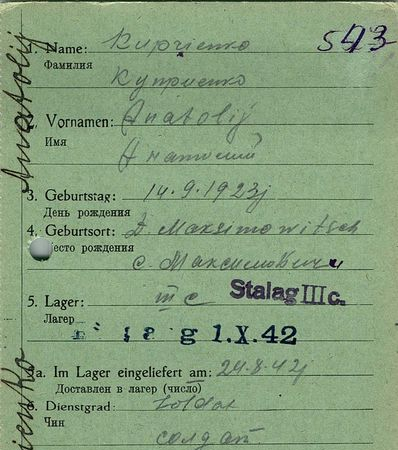 543
1. Name: Кирчіенко
Фамилия
Куприенко
2. Vornamen: Anatolij
Имя
Анатолий
3. Geburtstag: 14.9.1923j
День рождения
4. Geburtsort: D. Maksimowitsch
Место рождения
с. Максимовичи
5. Lager: III c Stalag III c.
Лагер
1.X.42
5a. Im Lager eingeliefert am: 24.8.42j
Доставлен в лагер (число)
6. Dienstgrad: Soldat
Чин
солдат
Anatolij
ienko